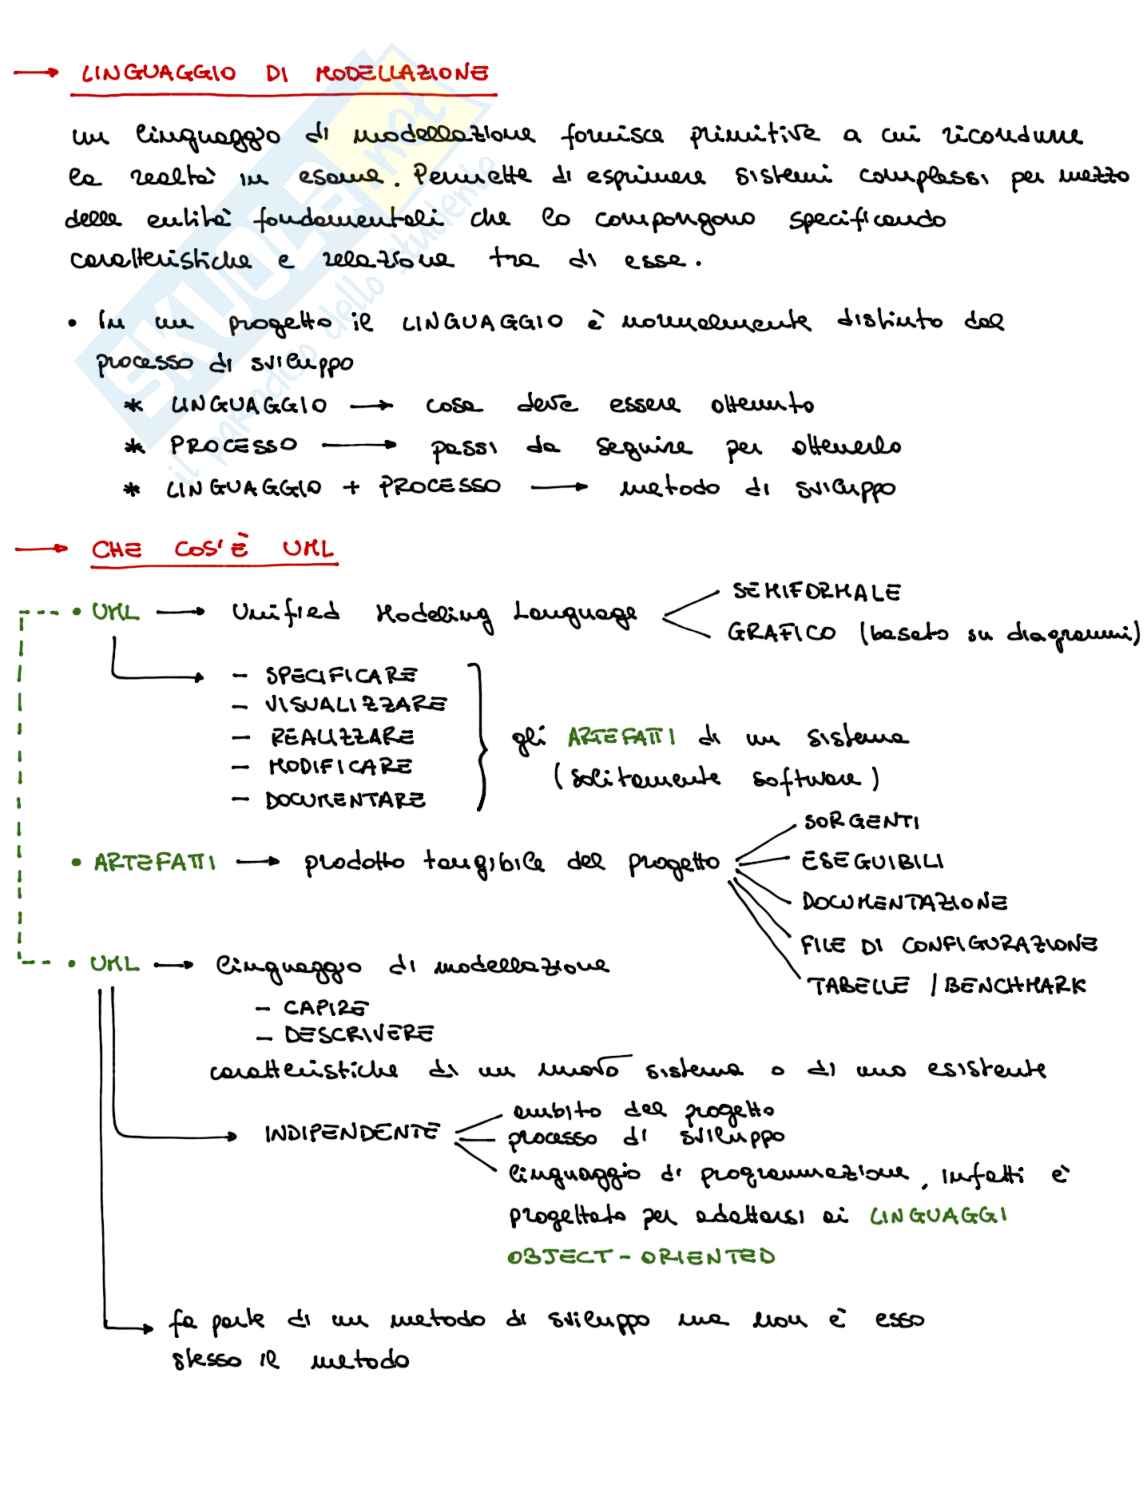 → LINGUAGGIO DI MODELLAZIONE
un linguaggio di modellazione fornisce primitive a cui ricondurre
la realtà in esame. Permette di esprimere sistemi complessi per mezzo
delle entità fondamentali che lo compongono specificando
caratteristiche e relazione tra di esse.
• In un progetto il LINGUAGGIO è normalmente distinto dal
processo di sviluppo
* LINGUAGGIO → cosa deve essere ottenuto
* PROCESSO → passi da seguire per ottenerlo
* LINGUAGGIO + PROCESSO → metodo di sviluppo
→ CHE COS'È UML
• UML → Unified Modeling Language
SEMIFORMALE
GRAFICO (basato su diagrammi)
- SPECIFICARE
- VISUALIZZARE
- REALIZZARE
- MODIFICARE
- DOCUMENTARE
gli ARTEFATTI di un sistema
(solitamente software)
• ARTEFATTI → prodotto tangibile del progetto
SORGENTI
ESEGUIBILI
DOCUMENTAZIONE
FILE DI CONFIGURAZIONE
TABELLE / BENCHMARK
• UML → linguaggio di modellazione
- CAPIRE
- DESCRIVERE
caratteristiche di un nuovo sistema o di uno esistente
INDIPENDENTE
ambito del progetto
processo di sviluppo
linguaggio di programmazione, infatti è
progettato per adattarsi ai LINGUAGGI
OBJECT-ORIENTED
fa parte di un metodo di sviluppo ma non è esso
stesso il metodo
SKUOLA.net
il paradiso dello studente